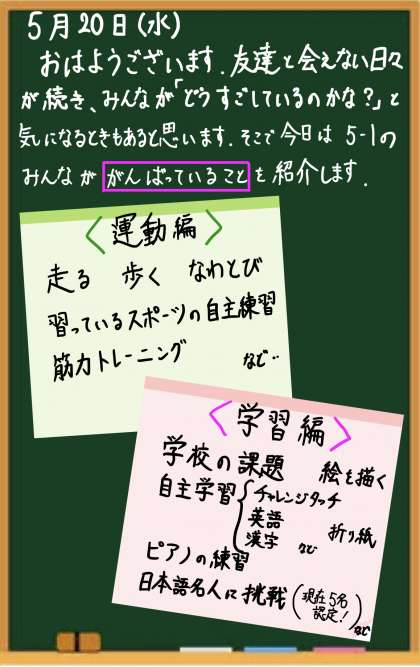 5月20日(水)
おはようございます.友達と会えない日々
が続き、みんなが「どうすごしているのかな?」と
気になるときもあると思います.そこで今日は 5-1の
みんなが がんばっていること を紹介します.
〈運動編〉
走る 歩く なわとび
習っているスポーツの自主練習
筋力トレーニング など‥
〈学習編〉
学校の課題 絵を描く
自主学習 チャレンジタッチ
英語
漢字 など 折り紙
ピアノの練習
日本語名人に挑戦 (現在5名認定!) など